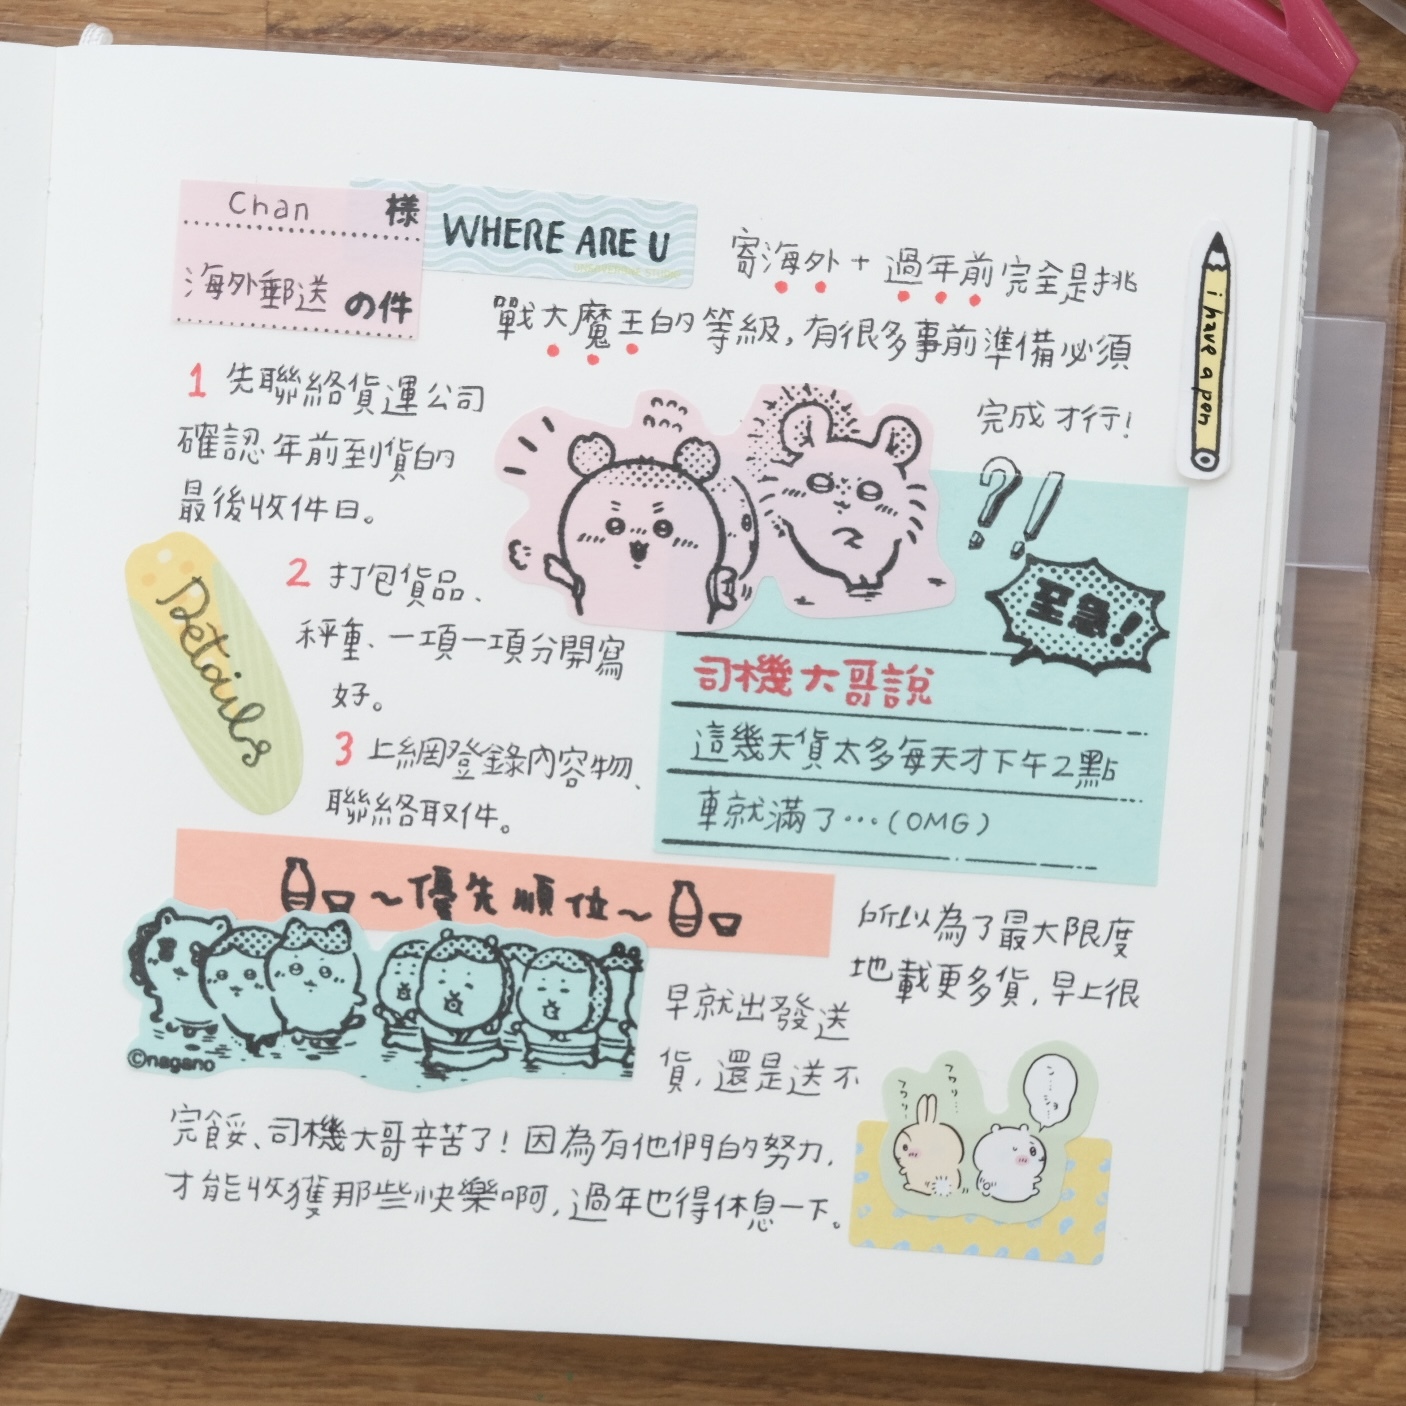 Chan 様
海外郵送 の件
WHERE ARE U
寄海外+過年前完全是挑
戰大魔王的等級,有很多事前準備必須
完成才行!
i have a pen
1 先聯絡貨運公司
確認年前到貨的
最後收件日。
Details
2 打包貨品、
秤重、一項一項分開寫
好。
3 上網登錄內容物、
聯絡取件。
?!
至急!
司機大哥說
這幾天貨太多每天才下午2點
車就滿了…(OMG)
~優先順位~
©nagano
所以為了最大限度
地載更多貨,早上很
早就出發送
貨,還是送不
完餒、司機大哥辛苦了!因為有他們的努力,
才能收獲那些快樂啊,過年也得休息一下。
フワリ…
フワリ…
ン…ショ…